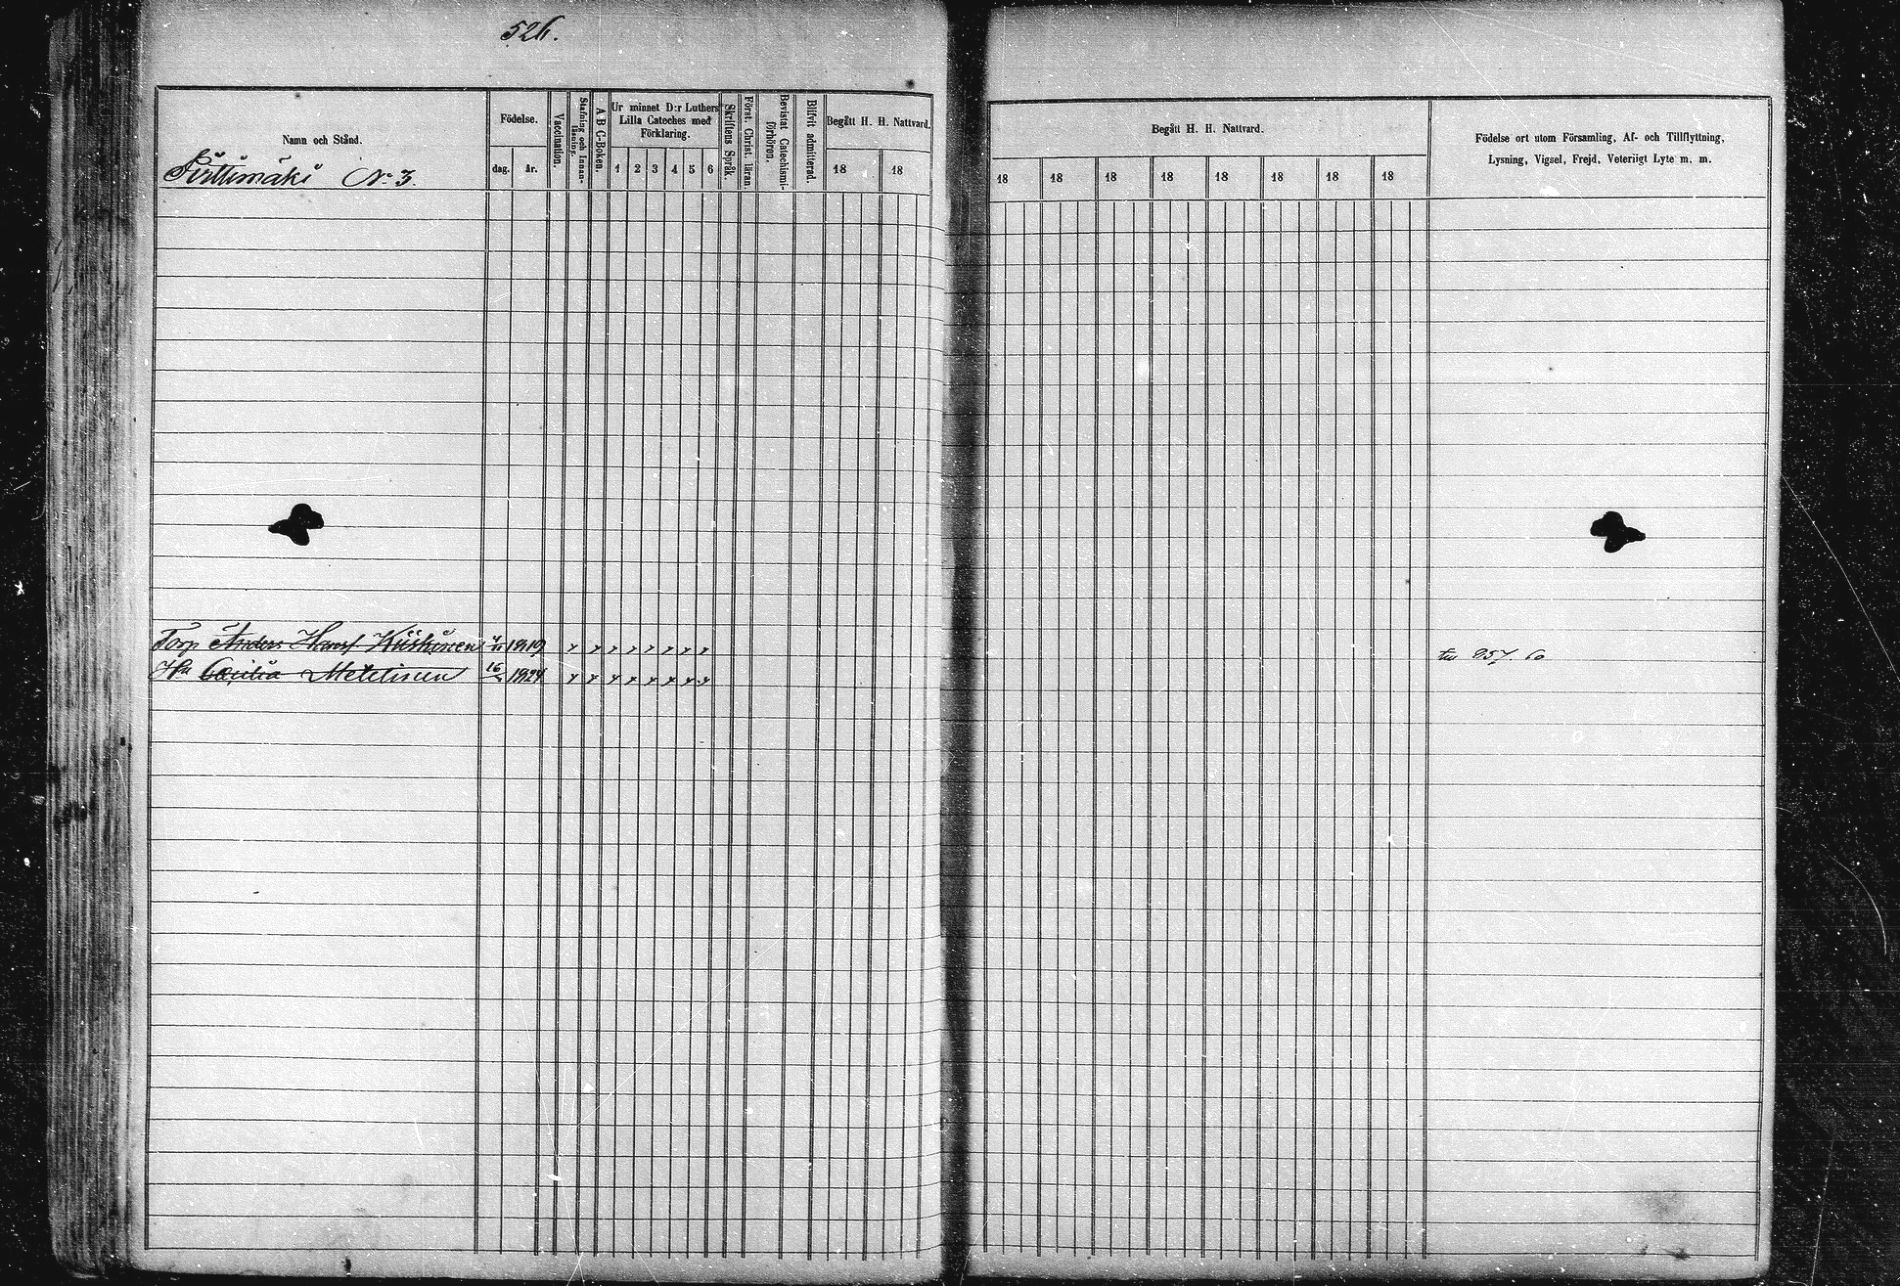 526.
Namn och Stånd.
Pirttimäki No 3.
Födelse.
dag. år.
Vaccination.
Stafning och Innanläsning.
A B C-Boken.
Ur minnet D:r Luthers
Lilla Cateches med
Förklaring.
1 2 3 4 5 6
Skriftens Språk.
Först. Christ. läran.
Bevistat Catechismiförhören.
Blifvit admitterad.
Begått H. H. Nattvard.
18 18
Begått H. H. Nattvard.
18 18 18 18 18 18 18 18
Födelse ort utom Församling, Af- och Tillflyttning,
Lysning, Vigsel, Frejd, Veterligt Lyte m. m.
Torp Anders Hanss Kiiskinen 1819
Hu Cæcilia 16 1824